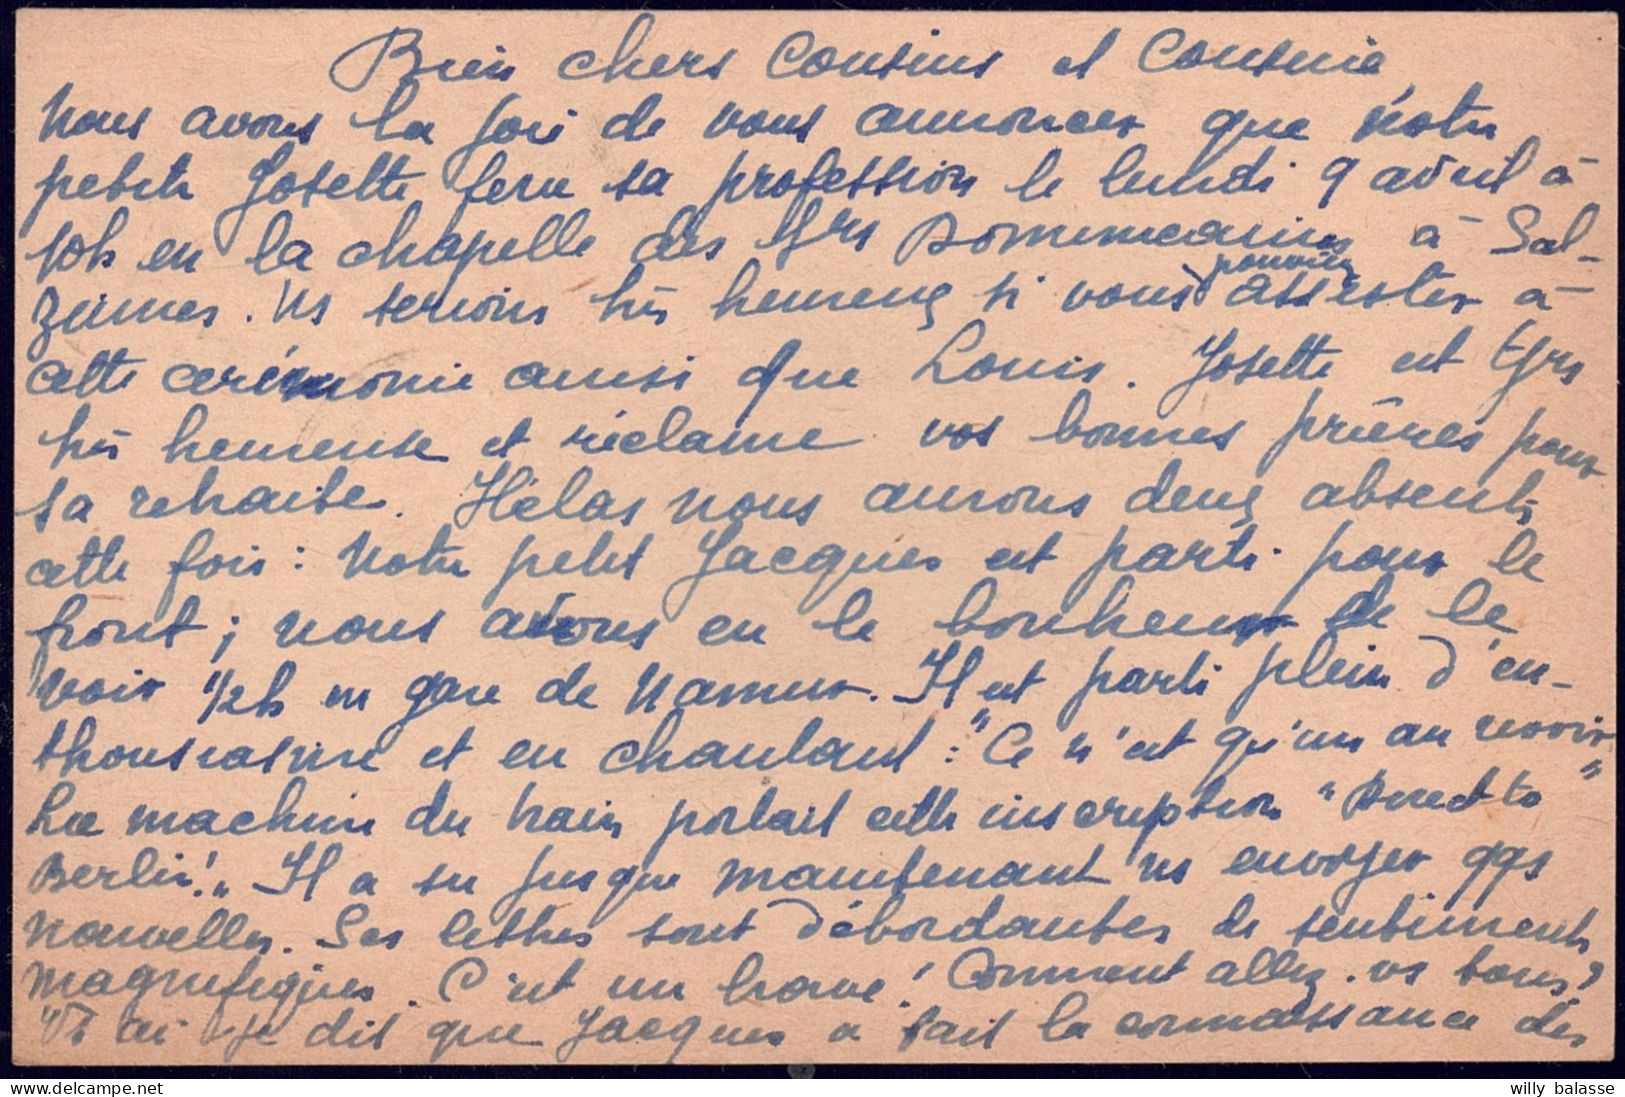 Bien chers Cousins et Cousine
Nous avons la joie de vous annoncer que notre
petite Josette fera sa profession le lundi 9 avril à
10h en la chapelle des Srs Dominicaines à Sal-
zinnes. Ns serions très heureux si vous pouviez assister à
cette cérémonie ainsi que Louis. Josette est tjrs
très heureuse et réclame vos bonnes prières pour
sa retraite. Hélas nous aurons deux absents
cette fois : Notre petit Jacques est parti pour le
front ; nous avons eu le bonheur de le
voir 1/2h en gare de Namur. Il est parti plein d'en-
thousiasme et en chantant : "Ce n'est qu'un au revoir"
La machine du train portait cette inscription "Direct to
Berlin!" Il a su jusque maintenant ns envoyer qqs
nouvelles. Ses lettres sont débordantes de sentiments
magnifiques. C'est un brave! Comment allez-vs tous?
Vs ai-je dit que Jacques a fait la connaissance des
willy balasse